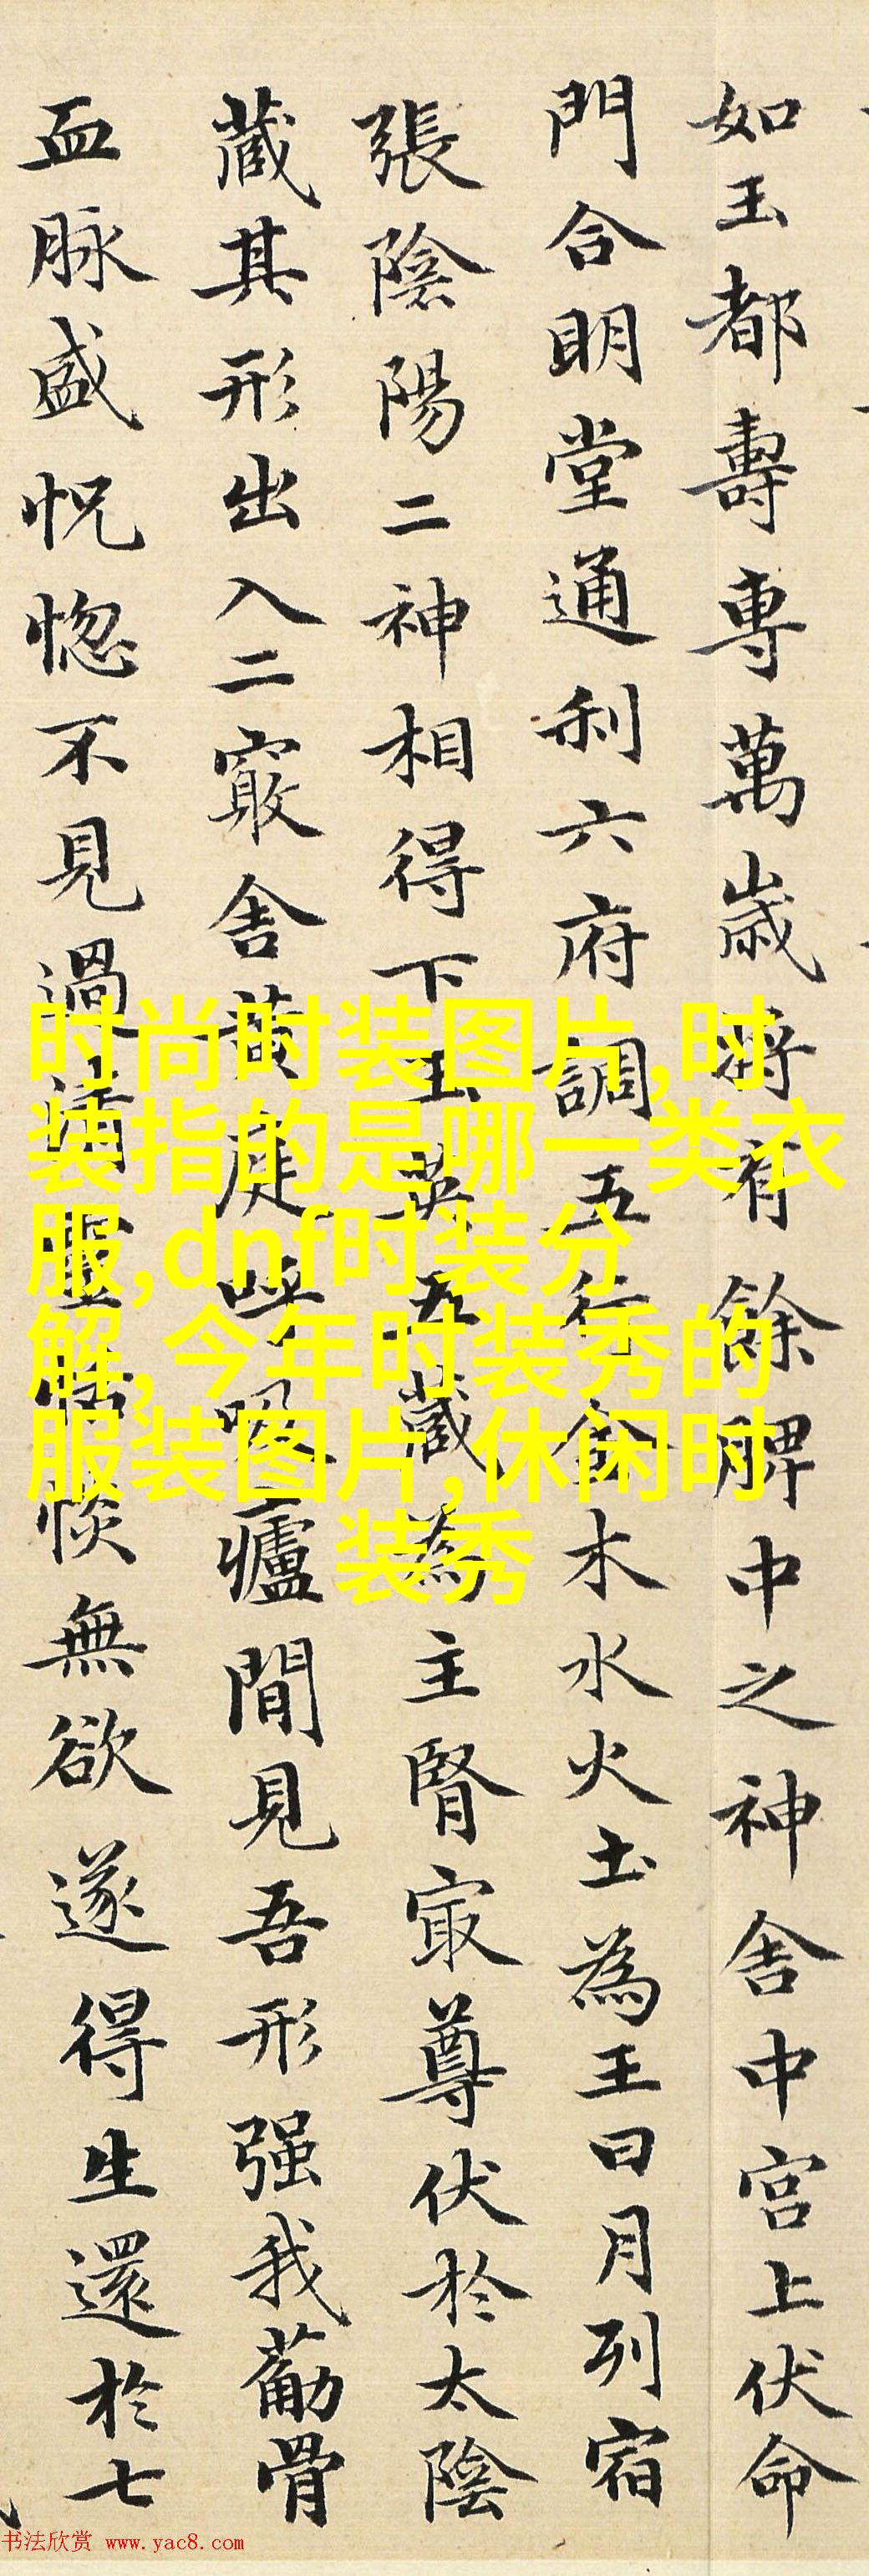 如玉都壽專萬歲將有餘脾中之神舍中宮上伏命
門合明堂通利六府調五行金木水火土為王日月列宿
張陰陽二神相得下玉英五藏為主腎寂尊伏於太陰
藏其形出入二竅舍黃庭呼吸廬間見吾形强我筋骨
血脉盛怳惚不見過清靈恬惔無欲遂得生還於七
时尚时装图片,时
装指的是哪一类衣
服,dnf时装分
解,今年时装秀的
服装图片,休闲时
装秀
书法欣赏 www.yac8.com